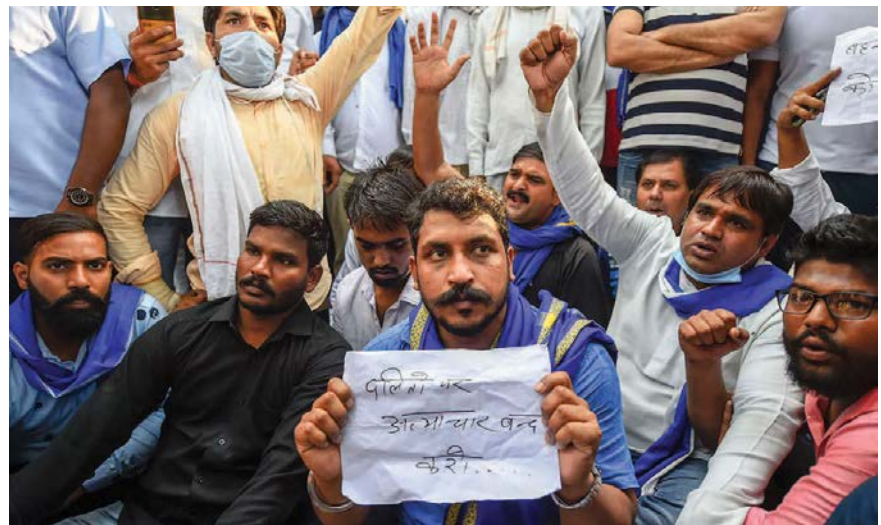 दलितो पर
अत्याचार बन्द
करो.....
की